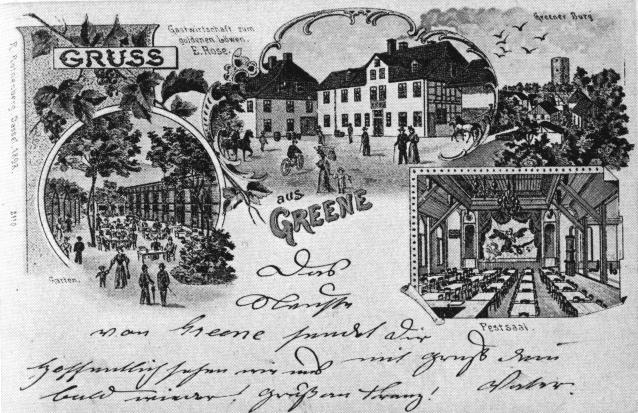 GRUSS
Gastwirtschaft zum
goldenen Löwen.
E. Rose.
Greener Burg
aus
GREENE
Garten.
Festsaal.
Das
Neuste
von Greene sendet Dir
mit Gruß Dein
Hoffentlich sehen wir uns
bald wieder! Gruß an Franz! Vater.